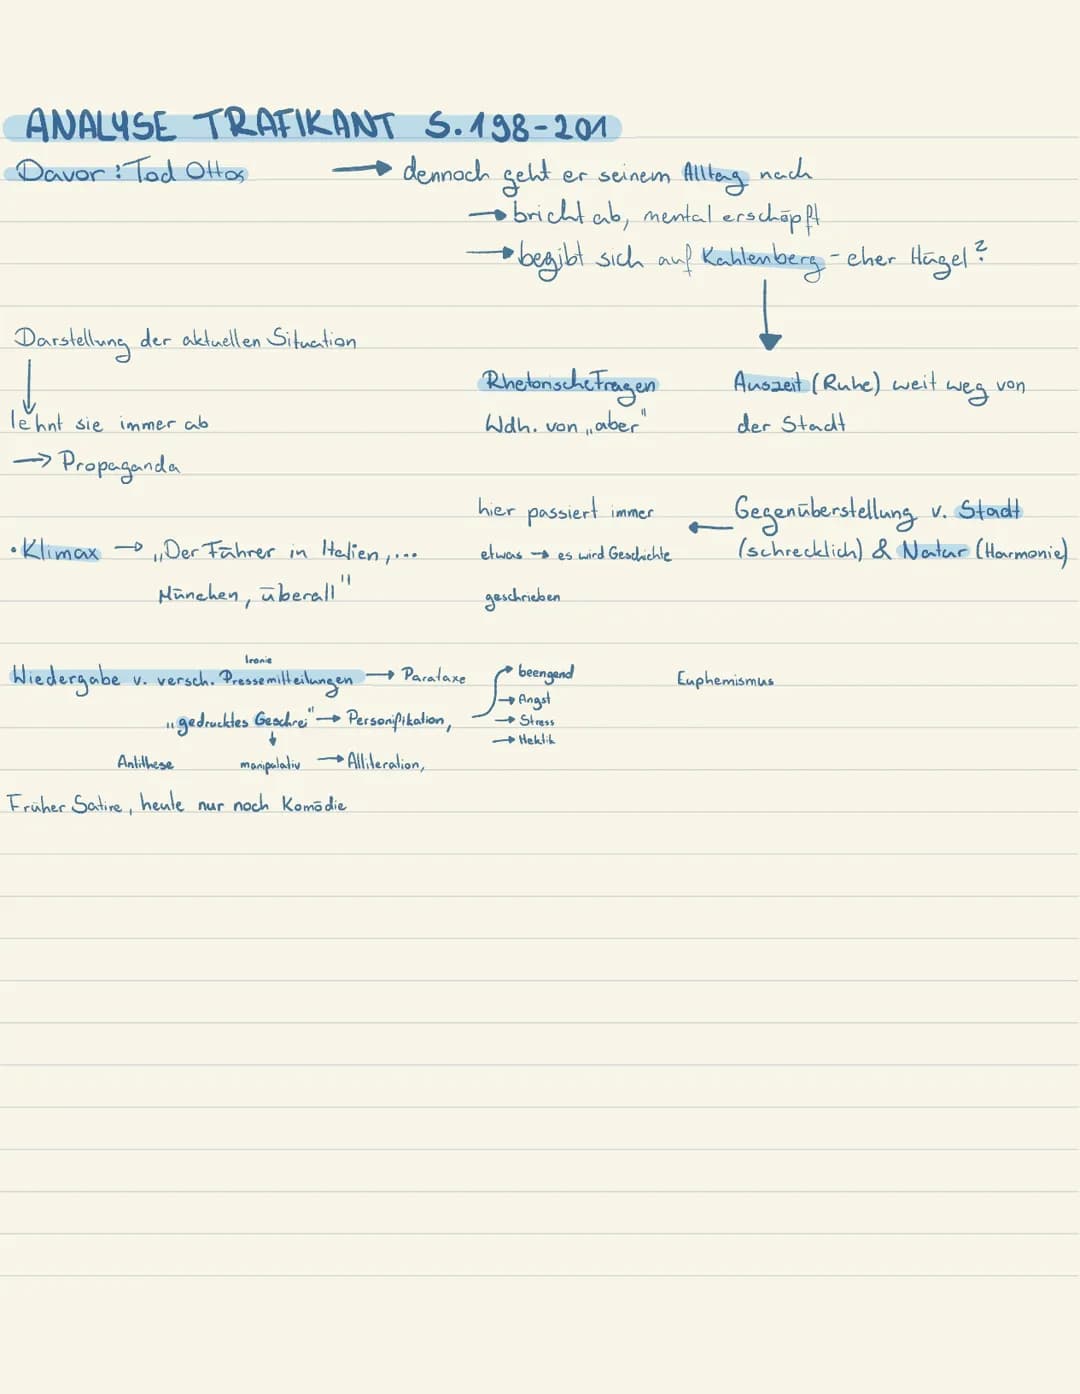 ANALYSE TRAFIKANT S.198-201
Davor: Tod Ottos → dennoch geht er seinem Alltag nach
→ bricht ab, mental erschöpft
→ begibt sich auf Kahlenberg - eher Hügel?
Darstellung der aktuellen Situation
lehnt sie immer ab
→ Propaganda
Rhetorische Fragen
Wdh. von „aber"
Auszeit (Ruhe) weit weg von
der Stadt
Gegenüberstellung v. Stadt
(schrecklich) & Natur (Harmonie)
hier passiert immer
etwas → es wird Geschichte
geschrieben
• Klimax → „Der Führer in Italien,...
München, überall"
Ironie
Wiedergabe v. versch. Pressemitteilungen → Parataxe
„gedrucktes Geschrei" → Personifikation,
→ beengend
→ Angst
→ Stress
→ Hektik
Euphemismus
Antithese manipulativ → Alliteration,
Früher Satire, heute nur noch Komödie